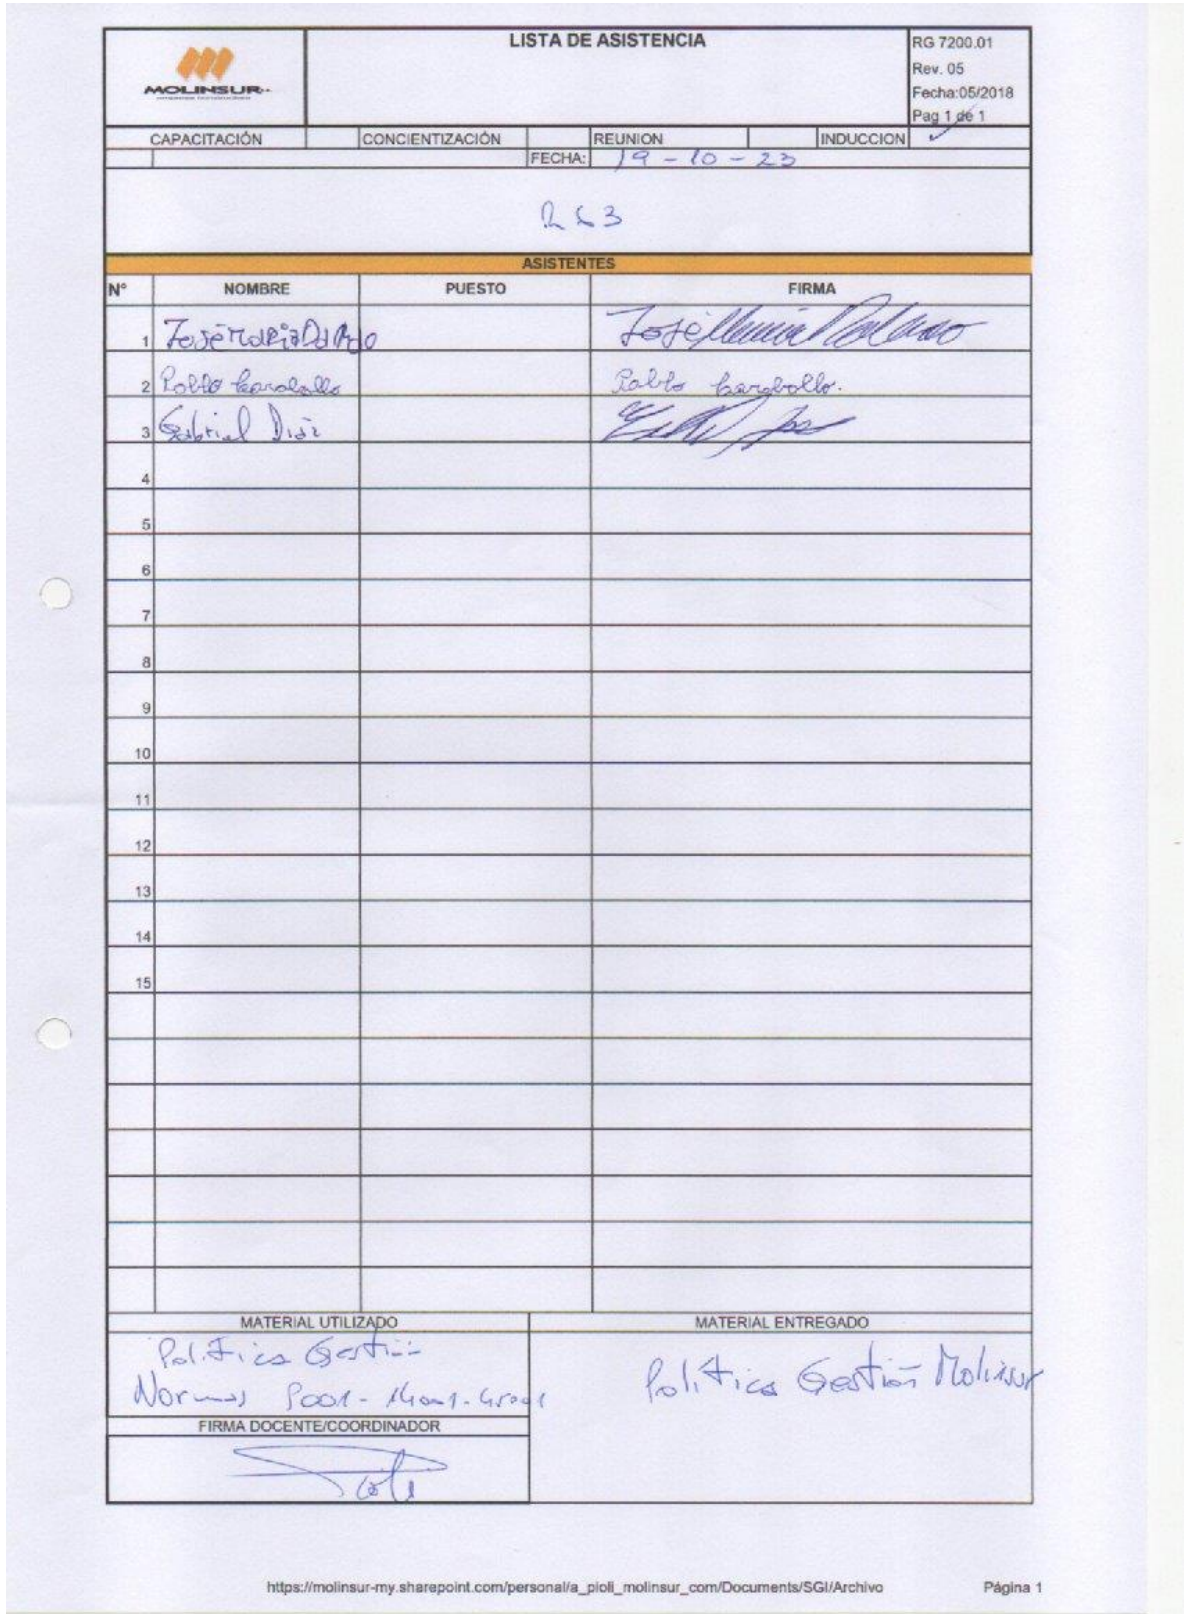 LISTA DE ASISTENCIA
RG 7200.01
Rev. 05
Fecha:05/2018
Pag 1 de 1
MOLINSUR
CAPACITACIÓN CONCIENTIZACIÓN REUNION INDUCCION ✓
FECHA: 19-10-23
ASISTENTES
N° NOMBRE PUESTO FIRMA
1 José María José María
2 Pablo Carabollo Pablo Carabollo.
3 Gabriel Diaz
4
5
6
7
8
9
10
11
12
13
14
15
MATERIAL UTILIZADO MATERIAL ENTREGADO
Politica Gestión
Normas 9001-14001-45001
Politica Gestión Molinsur
FIRMA DOCENTE/COORDINADOR
https://molinsur-my.sharepoint.com/personal/a_pioli_molinsur_com/Documents/SGI/Archivo Página 1